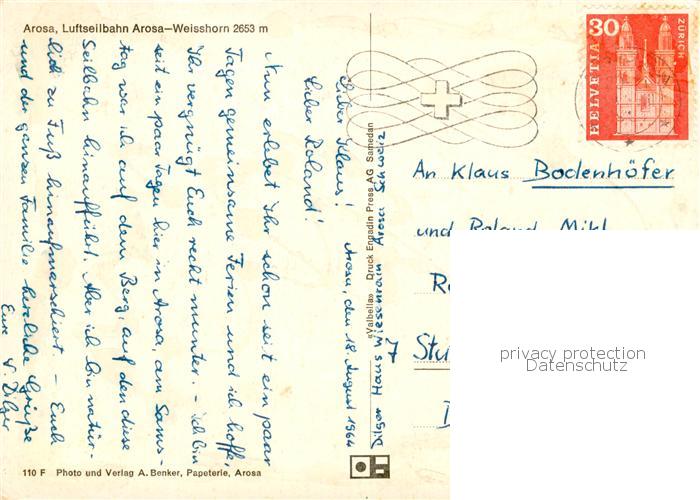 Arosa, Luftseilbahn Arosa–Weisshorn 2653 m
Arosa, den 18. August 1964
Lieber Klaus!
Lieber Roland!
Nun erlebet Ihr schon seit ein paar
Tagen gemeinsame Ferien und ich hoffe,
Ihr vergnügt Euch recht munter. – Ich bin
seit ein paar Tagen hier in Arosa, am Sams-
tag war ich auf dem Berg, auf den diese
Seilbahn hinaufführt. Aber ich bin natür-
lich zu Fuß hinaufmarschiert. – Euch
und der ganzen Familie herzliche Grüße
Eure V. Dilger
110 F Photo und Verlag A. Benker, Papeterie, Arosa
«Valbella» Druck Engadin Press AG Samedan
Dilger Haus Wiesenrain Arosa Schweiz
30
HELVETIA
ZÜRICH
An Klaus Bodenhöfer
und Roland Mihl
R
7 Stu
privacy protection
Datenschutz